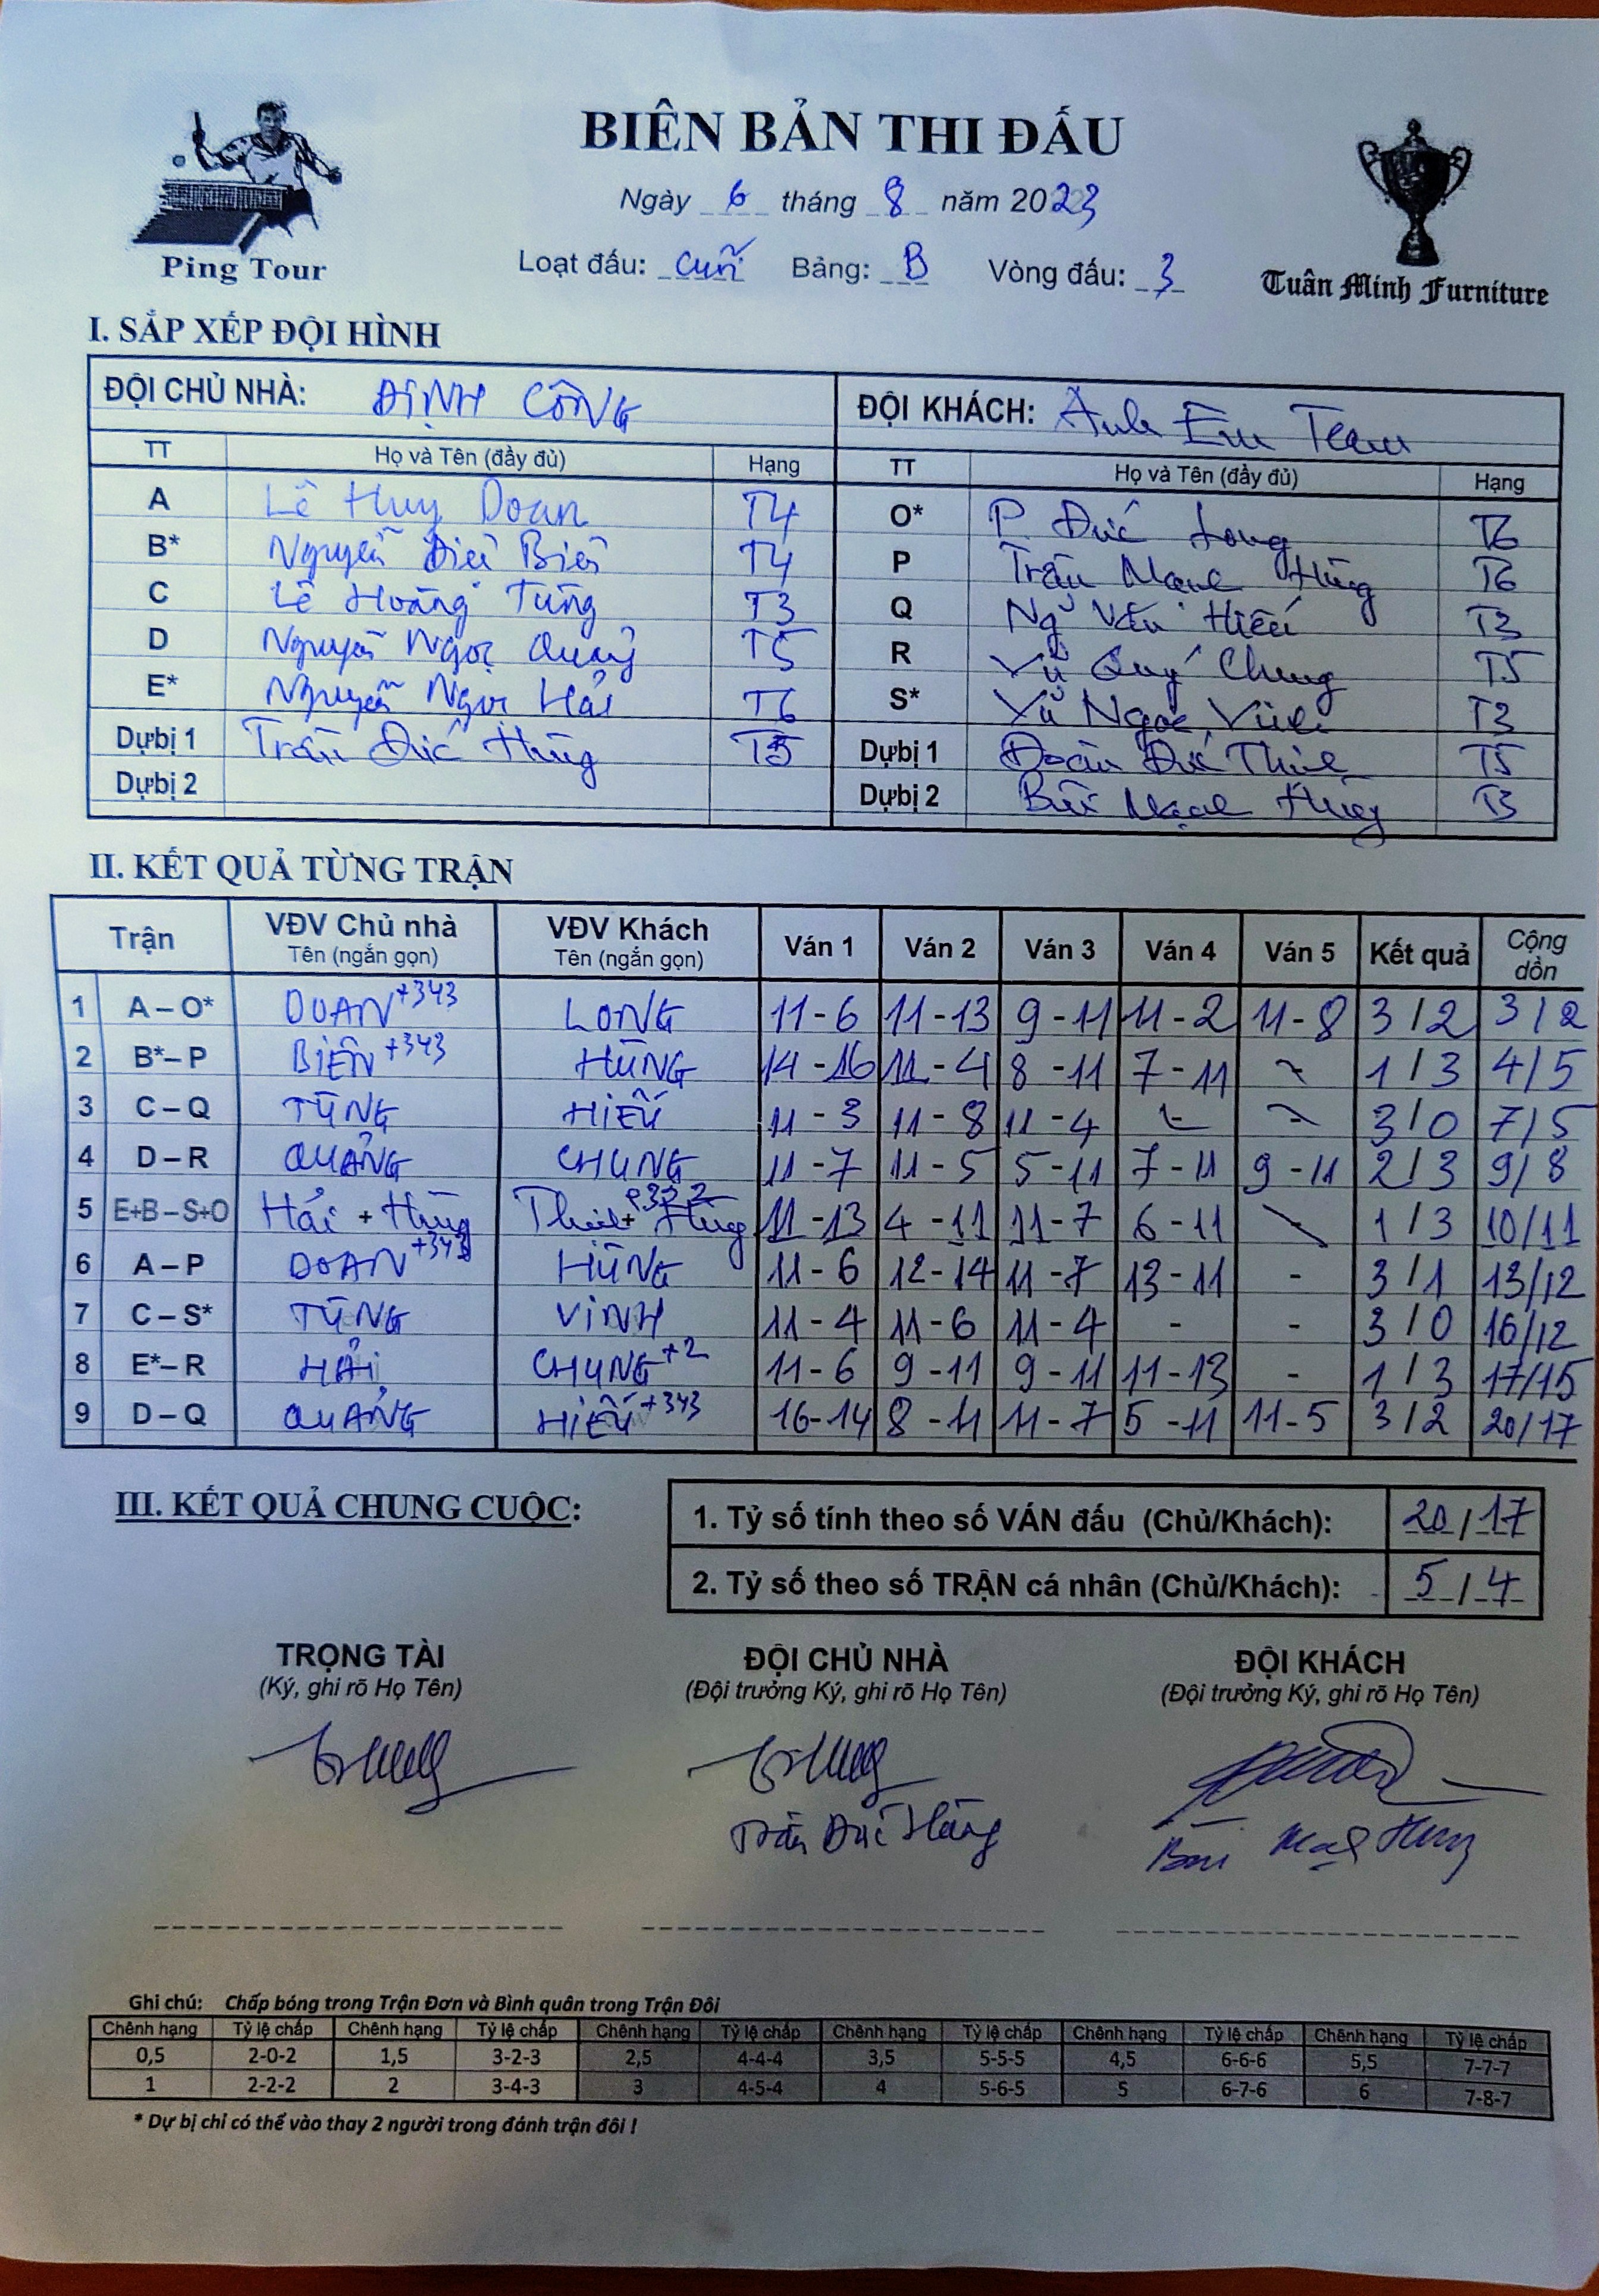 BIÊN BẢN THI ĐẤU
Ngày 6 tháng 8 năm 2023
Ping Tour
Loạt đấu: cuối Bảng: B Vòng đấu: 3
Tuân Minh Furniture
I. SẮP XẾP ĐỘI HÌNH
ĐỘI CHỦ NHÀ: ĐỊNH CÔNG ĐỘI KHÁCH: Anh Em Team
TT Họ và Tên (đầy đủ) Hạng TT Họ và Tên (đầy đủ) Hạng
A Lê Huy Doan T4 O* P. Đức Long T6
B* Nguyễn Biên T4 P Trần Mạnh Hùng T6
C Lê Hoàng Tùng T3 Q Ng Văn Hiếu T3
D Nguyễn Ngọc Quảng T5 R Vũ Quý Chung T5
E* Nguyễn Ngọc Hải T6 S* Vũ Ngọc Vinh T3
Dự bị 1 Trần Đức Hùng T5 Dự bị 1 Đoàn Đức Thịnh T5
Dự bị 2 Dự bị 2 Bùi Mạnh Hùng T3
II. KẾT QUẢ TỪNG TRẬN
Trận VĐV Chủ nhà Tên (ngắn gọn) VĐV Khách Tên (ngắn gọn) Ván 1 Ván 2 Ván 3 Ván 4 Ván 5 Kết quả Cộng dồn
1 A – O* DOAN +343 LONG 11-6 11-13 9-11 11-2 11-8 3/2 3/2
2 B* – P BIÊN +343 HÙNG 14-16 11-4 8-11 7-11 - 1/3 4/5
3 C – Q TÙNG HIẾU 11-3 11-8 11-4 - - 3/0 7/5
4 D – R QUẢNG CHUNG 11-7 11-5 5-11 7-11 9-11 2/3 9/8
5 E+B – S+O Hải + Hùng Thịnh + Hùng 11-13 4-11 11-7 6-11 \ 1/3 10/11
6 A – P DOAN +343 HÙNG 11-6 12-14 11-7 13-11 - 3/1 13/12
7 C – S* TÙNG VINH 11-4 11-6 11-4 - - 3/0 16/12
8 E* – R HẢI CHUNG +2 11-6 9-11 9-11 11-13 - 1/3 17/15
9 D – Q QUẢNG HIẾU +343 16-14 8-11 11-7 5-11 11-5 3/2 20/17
III. KẾT QUẢ CHUNG CUỘC:
1. Tỷ số tính theo số VÁN đấu (Chủ/Khách): 20/17
2. Tỷ số theo số TRẬN cá nhân (Chủ/Khách): 5/4
TRỌNG TÀI ĐỘI CHỦ NHÀ ĐỘI KHÁCH
(Ký, ghi rõ Họ Tên) (Đội trưởng Ký, ghi rõ Họ Tên) (Đội trưởng Ký, ghi rõ Họ Tên)
Trần Đức Hùng Bùi Mạnh Hùng
Ghi chú: Chấp bóng trong Trận Đơn và Bình quân trong Trận Đôi
Chênh hạng Tỷ lệ chấp Chênh hạng Tỷ lệ chấp Chênh hạng Tỷ lệ chấp Chênh hạng Tỷ lệ chấp Chênh hạng Tỷ lệ chấp Chênh hạng Tỷ lệ chấp
0,5 2-0-2 1,5 3-2-3 2,5 4-4-4 3,5 5-5-5 4,5 6-6-6 5,5 7-7-7
1 2-2-2 2 3-4-3 3 4-5-4 4 5-6-5 5 6-7-6 6 7-8-7
* Dự bị chỉ có thể vào thay 2 người trong đánh trận đôi !